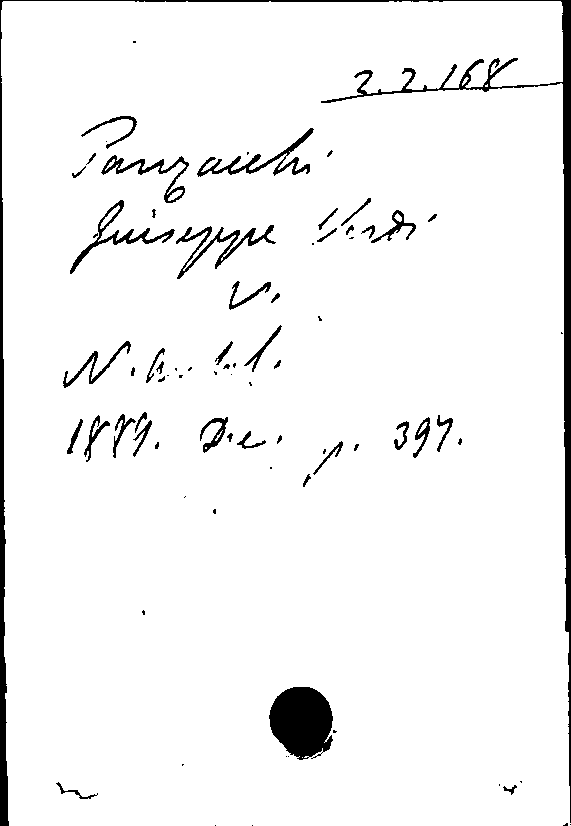 2.2.168
Panzacchi
Giuseppe Verdi
V.
N. Ant.
1889. Dec. p. 397.